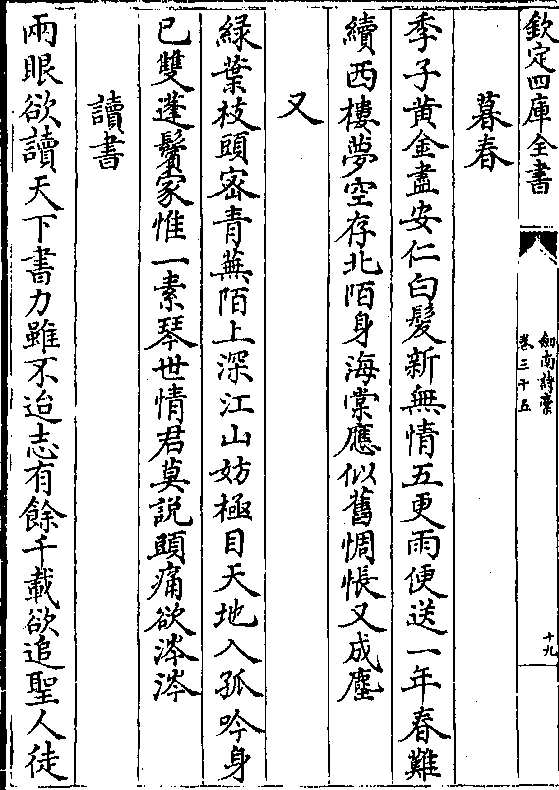 欽定四庫全書
劒南詩藁
卷三十五
十九
暮春
季子黄金盡安仁白髪新無情五更雨便送一年春難
續西樓夢空存北陌身海棠應似舊惆悵又成塵
又
緑葉枝頭宻青蕪陌上深江山妨極目天地入孤吟身
已雙蓬鬢家惟一素琴世情君莫説頭痛欲涔涔
讀書
兩眼欲讀天下書力雖不迨志有餘千載欲追聖人徒